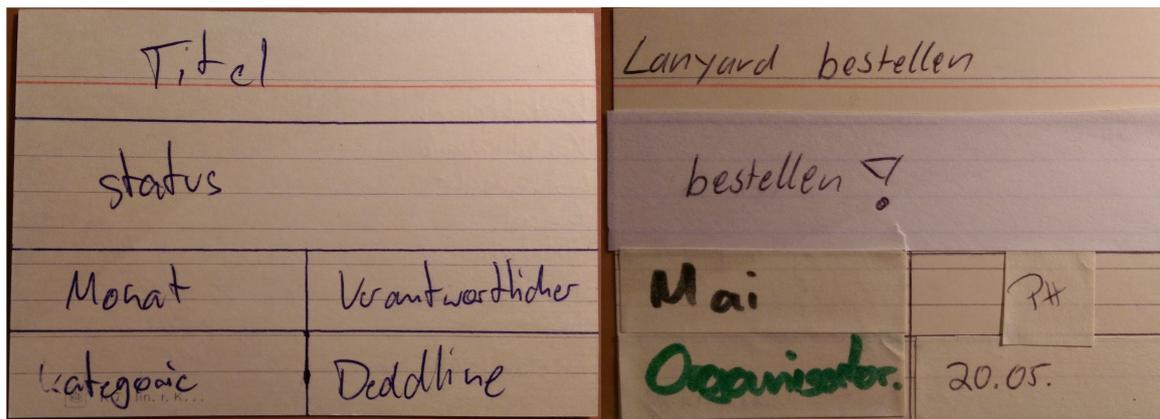 Titel
status
Monat
Verantwortlicher
Kategorie
Deadline
Lanyard bestellen
bestellen!
Mai
PH
Organisator.
20.05.